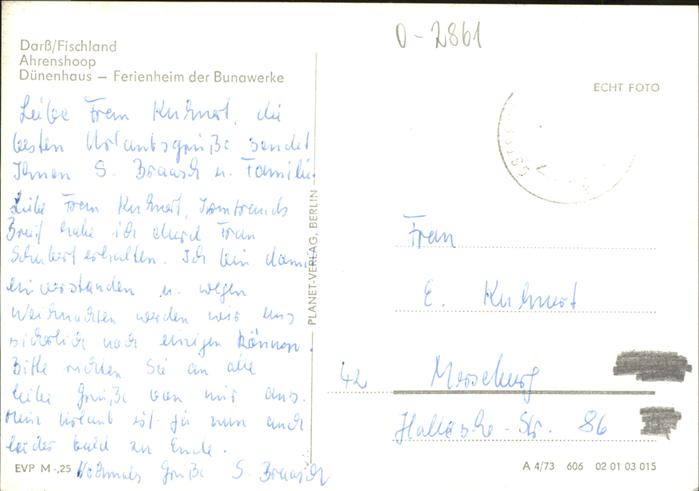 O-2861
Darß/Fischland
Ahrenshoop
Dünenhaus – Ferienheim der Bunawerke
ECHT FOTO
Liebe Frau Kuhnert, die
besten Urlaubsgrüße sendet
Ihnen S. Braasch u. Familie.
Liebe Frau Kuhnert, Irmtrauds
Brief habe ich durch Frau
Schubert erhalten. Ich bin damit
einverstanden u. wegen
Weihnachten werden wir uns
sicherlich noch einigen können.
Bitte richten Sie an alle
liebe Grüße von mir aus.
Mein Urlaub ist ja nun auch
leider bald zu Ende.
Nochmals Grüße S. Braasch
PLANET-VERLAG, BERLIN
Frau
E. Kuhnert
42 Merseburg
Hallesche-Str. 86
EVP M -,25
A 4/73 606 02 01 03 015